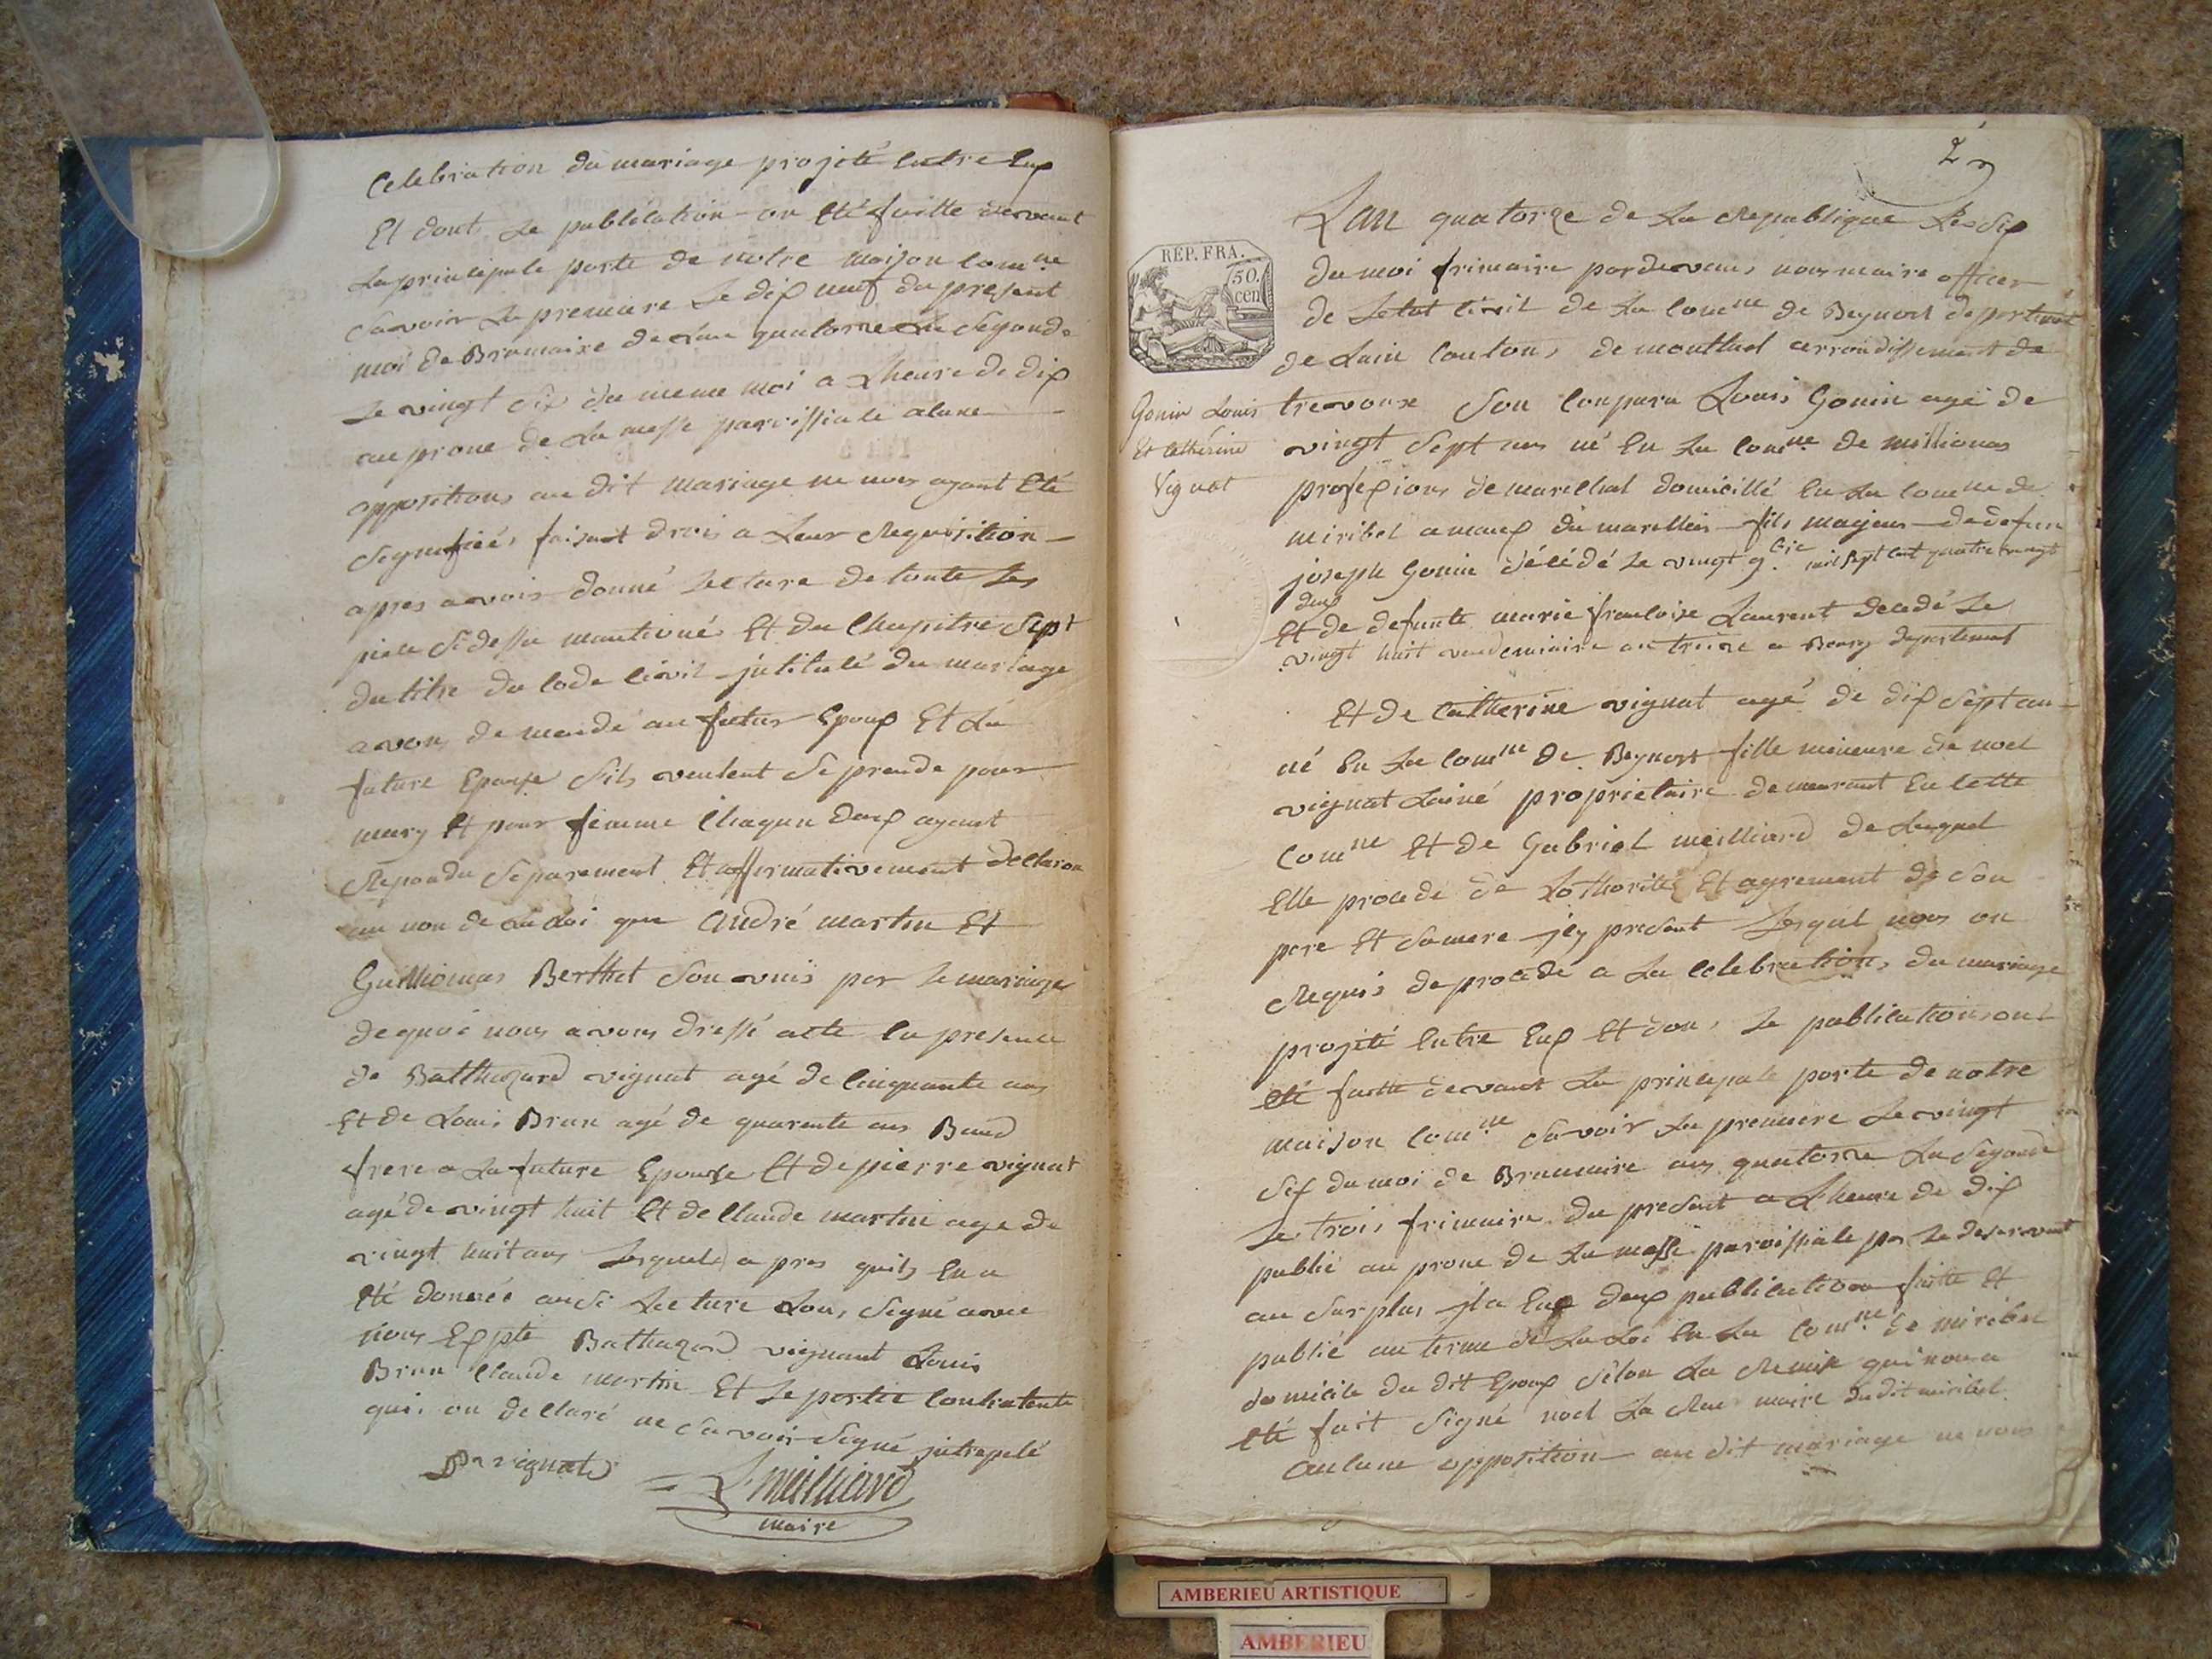 Celebration du mariage projeté Entre Eux
Et dont Le publication on Eté faitte devant
La principale porte de notre maison Comne
Savoir La premiere Le dix neuf du present
moi de Brumaire de Lan quatorze La Segonde
Le vingt six du meme moi a Lheure de dix
au prone de La messe paroissiale alune
oppositions au dit mariage ne nous ayant Eté
Signifiée, faisant drois a Leur Requisition
apres avoir donné Lecture de toute Les
piece Si dessu mantioné Et du Chapitre Sept
du titre du Code Civil jntitulé du mariage
avons demandé au futur Epoux Et La
future Epouse Sils veulent Se prende pour
mary Et pour femme Chaqun deux ayant
Repondu Separement Et affirmativement declaron
au non de La Loi que André martin Et
Berthet Son unis par Le mariage
de quoi nous avons dressé acte En presence
de Balthazard vignat agé de Cinquante ans
Et de Louis Brun agé de quarente ans Baud
frere a La future Epouse Et de pierre vignat
agé de vingt huit Et de Claude martin age de
vingt huit ans Lesquels apres quils En a
Eté donnée ausi Lecture Son, Signé avec
nous Expte Bathazard vignant Louis
Brun Claude martin Et Le partie Contratente
qui on declaré ne Savoir Signé jntrepelé
vignat
L meilliard
maire
2
REP. FRA.
50.
cen
Gonin Louis
Et Catherine
Vignat
Lan quatorze de La Republique Le Six
du moi frimaire pardevans nous maire officer
de Letat Civil de La Comne de Beynost departemt
de Lain Canton, de montluel arrondissement de
trevoux Son Conparu Louis Gonin agé de
vingt Sept ans né En La Comne de
profexions de marechal domicillé En La Comne de
miribel amaux du marellier fils majeur de defun
joseph Gonin décédé Le vingt 9bre mil Sept Cent quatre vingt
deux
Et de defunte marie francoise Laurent decedé Le
vingt huit vendemiaire an treize a Bourg departement
Et de Catherine vignat agé de dix Sept an
né En La Comne De Beynost fille mineure de noel
vignat Lainé proprietaire demeurant En Cette
Comne Et de Gabriel meilliard de Lequel
Elle procede de Lothorité Et agrement de Son
pere Et Samere jcy present Lesquel nous on
Requis de procede a La Celebration, du mariage
projeté Entre Eux Et don, Le publication ont
Eté faitte devant La principale porte de notre
maison Comne Savoir La premiere Le vingt
Six du moi de Brumaire an quatorze La Segonde
Le trois frimaire du present a Lheure de dix
publié au prone de La messe paroissiale par Le deservant
au Surplus jl a Eux deux publication faitte Et
publié au terme de La Loi En La Comne de miribel
domicile du dit Epoux Selon La Remise qui nou a
Eté fait Signé noel La Rue maire dudit miribel
aulune opposition au dit mariage ne nous
AMBERIEU ARTISTIQUE
AMBERIEU